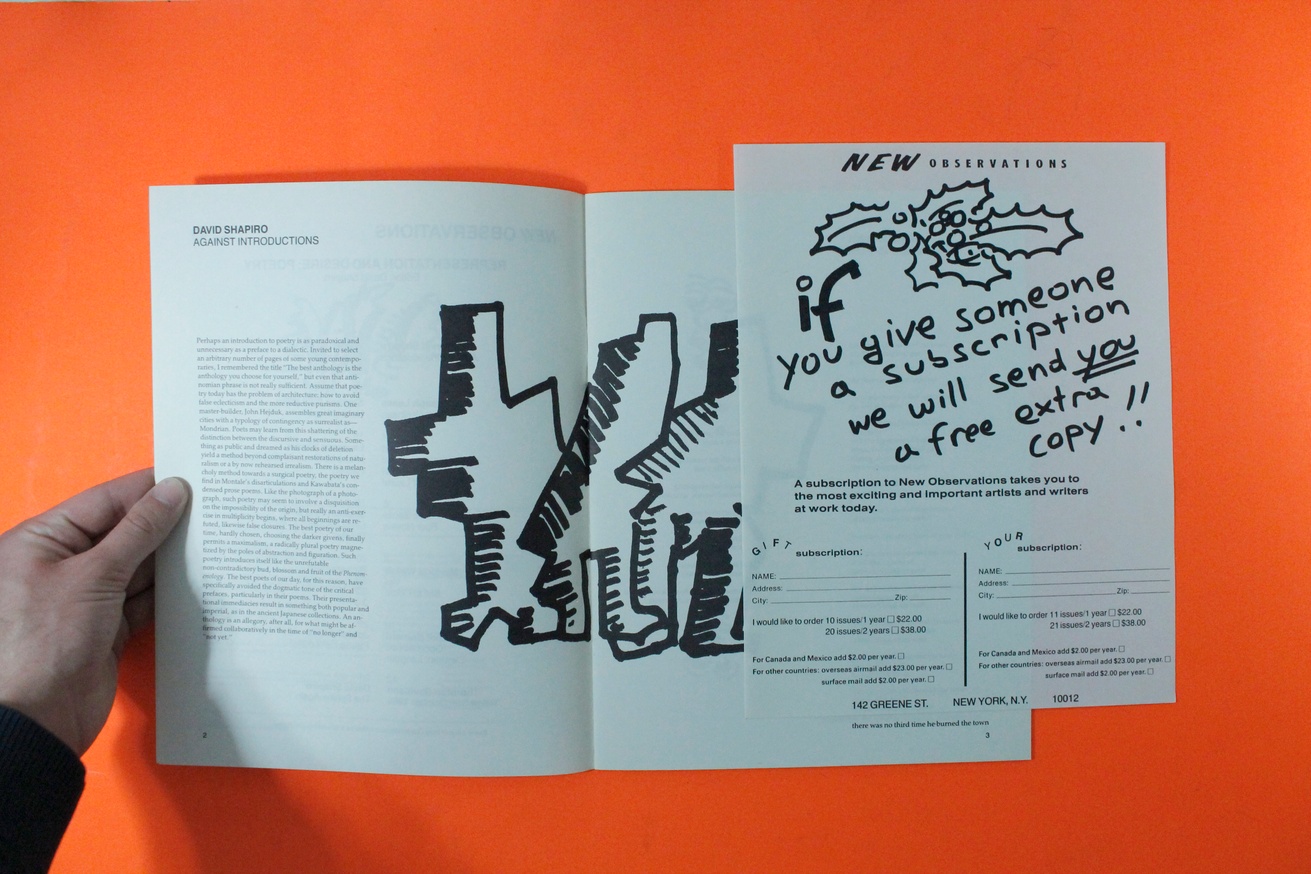 DAVID SHAPIRO
AGAINST INTRODUCTIONS
Perhaps an introduction to poetry is as paradoxical and
unnecessary as a preface to a dialectic. Invited to select
an arbitrary number of pages of some young contempo-
raries, I remembered the title "The best anthology is the
anthology you choose for yourself," but even that anti-
nomian phrase is not really sufficient. Assume that poe-
try today has the problem of architecture: how to avoid
false eclecticism and the more reductive purisms. One
master-builder, John Hejduk, assembles great imaginary
cities with a typology of contingency as surrealist as—
Mondrian. Poets may learn from this shattering of the
distinction between the discursive and sensuous. Some-
thing as public and dreamed as his clocks of deletion
yield a method beyond complaisant restorations of natu-
ralism or a by now rehearsed irrealism. There is a melan-
choly method towards a surgical poetry, the poetry we
find in Montale's disarticulations and Kawabata's con-
densed prose poems. Like the photograph of a photo-
graph, such poetry may seem to involve a disquisition
on the impossibility of the origin, but really an anti-exer-
cise in multiplicity begins, where all beginnings are re-
futed, likewise false closures. The best poetry of our
time, hardly chosen, choosing the darker givens, finally
permits a maximalism, a radically plural poetry magne-
tized by the poles of abstraction and figuration. Such
poetry introduces itself like the unrefutable
non-contradictory bud, blossom and fruit of the Phenom-
enology. The best poets of our day, for this reason, have
specifically avoided the dogmatic tone of the critical
prefaces, particularly in their poems. Their presenta-
tional immediacies result in something both popular and
imperial, as in the ancient Japanese collections. An an-
thology is an allegory, after all, for what might be af-
firmed collaboratively in the time of "no longer" and
"not yet."
2
NEW OBSERVATIONS
if
you give someone
a subscription
we will send you
a free extra
copy !!
A subscription to New Observations takes you to
the most exciting and important artists and writers
at work today.
GIFT subscription:
NAME:
Address:
City: Zip:
I would like to order 10 issues/1 year $22.00
20 issues/2 years $38.00
For Canada and Mexico add $2.00 per year.
For other countries: overseas airmail add $23.00 per year.
surface mail add $2.00 per year.
YOUR subscription:
NAME:
Address:
City: Zip:
I would like to order 11 issues/1 year $22.00
21 issues/2 years $38.00
For Canada and Mexico add $2.00 per year.
For other countries: overseas airmail add $23.00 per year.
surface mail add $2.00 per year.
142 GREENE ST. NEW YORK, N.Y. 10012
there was no third time he burned the town
3